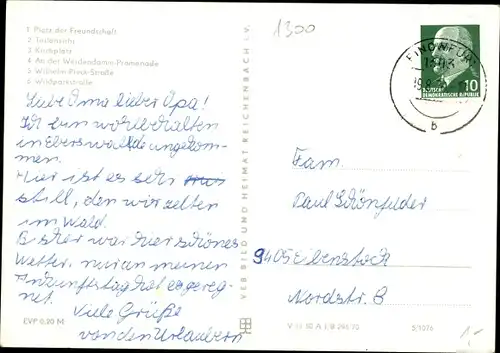 1 Platz der Freundschaft
2 Teilansicht
3 Karlsplatz
4 An der Weidendamm-Promenade
5 Wilhelm-Pieck-Straße
6 Wildparkstraße
Liebe Oma lieber Opa!
Ich bin wohlbehalten
in Eberswalde angekom-
men.
Hier ist es sehr
still, den wir zelten
im Wald.
Bisher war hier schönes
Wetter, nur an meinen
Ankunftstag hat es gereg-
net.
Viele Grüße
von den Urlaubern
EVP 0,20 M
VEB BILD UND HEIMAT REICHENBACH i. V.
1300
FINOWFURT
1303
b
10
DEUTSCHE
DEMOKRATISCHE REPUBLIK
Fam.
Paul Schönfelder
9405 Eibenstock
Nordstr. 8
V 11 50 A 1/B 294/70
5/1076
1,-